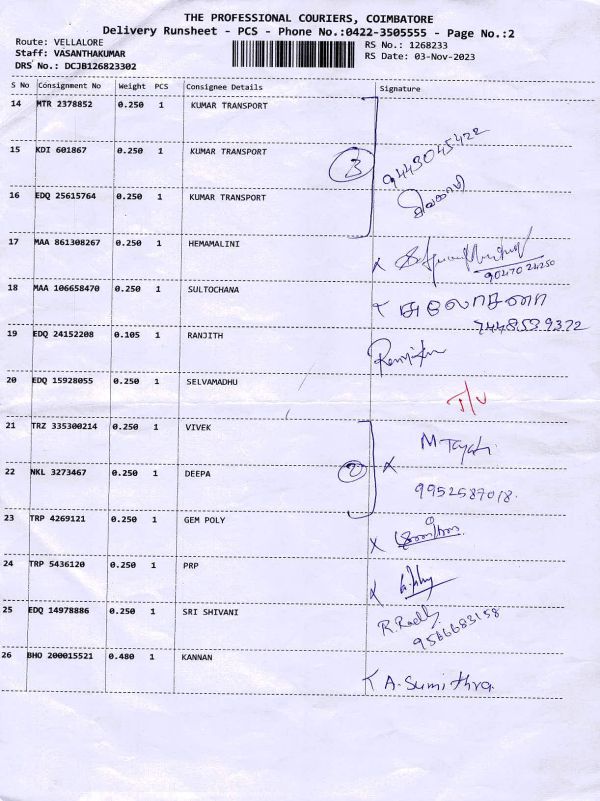 THE PROFESSIONAL COURIERS, COIMBATORE
Delivery Runsheet - PCS - Phone No.:0422-3505555 - Page No.:2
Route: VELLALORE
Staff: VASANTHAKUMAR
DRS No.: DCJB126823302
RS No.: 1268233
RS Date: 03-Nov-2023
S No Consignment No Weight PCS Consignee Details Signature
14 MTR 2378852 0.250 1 KUMAR TRANSPORT
15 KDI 601867 0.250 1 KUMAR TRANSPORT 3 9443045422
16 EDQ 25615764 0.250 1 KUMAR TRANSPORT
17 MAA 861308267 0.250 1 HEMAMALINI X
90470 24250
18 MAA 106658470 0.250 1 SULTOCHANA சுலோசனா
19 EDQ 24152208 0.105 1 RANJITH
20 EDQ 15928055 0.250 1 SELVAMADHU
21 TRZ 335300214 0.250 1 VIVEK
22 NKL 3273467 0.250 1 DEEPA 2 X 9952587018.
23 TRP 4269121 0.250 1 GEM POLY X
24 TRP 5436120 0.250 1 PRP X
25 EDQ 14978886 0.250 1 SRI SHIVANI
9566683158
26 BHO 200015521 0.480 1 KANNAN A. Sumithra